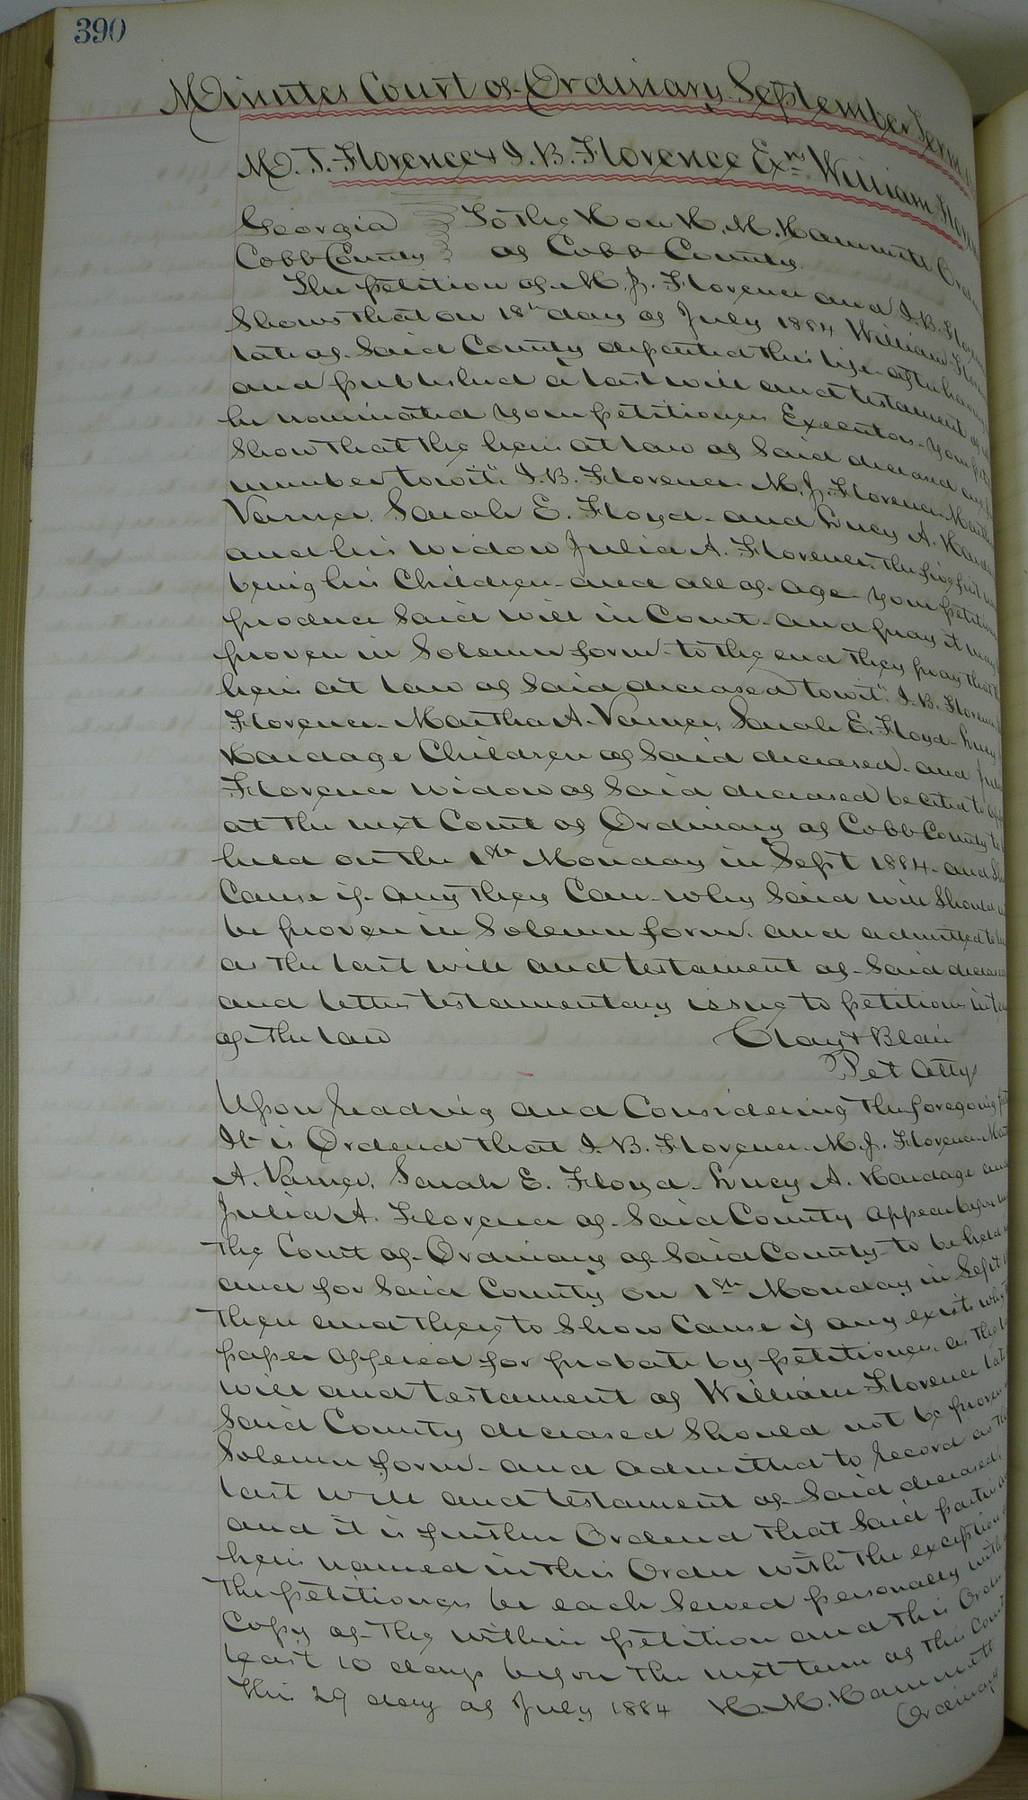 390
Minutes Court of Ordinary September Term
M. J. Florence & I. B. Florence Exrs William
Georgia To the Hon H. M. Hammett
Cobb County of Cobb County
The petition of M. J. Florence and I. B.
Shows that on 18th day of July 1884 William
late of Said County departed this life after having
and published a last will and testament
he nominated your petitioners Executors your
Show that the heirs at law of Said deceased
number towit" I. B. Florence M. J. Florence
Varner, Sarah E. Floyd and Lucy A.
and his widow Julia A. Florence, the five first
being his Children and all of age your
produce Said will in Court and pray it may
proven in Solemn form to the end they pray that
heirs at law of Said deceased towit" I. B. Florence
Florence Martha A. Varner, Sarah E. Floyd Lucy
Hardage Children of Said deceased and
Florence widow of Said deceased be cited to
at the next Court of Ordinary of Cobb County to
held on the 1st Monday in Sept 1884 and
Cause if any they Can why Said will Should
be proven in Solemn form and admitted to
as the last will and testament of Said
and letters testamentary issue to petitioners in
of the law Clay & Blair
Pet Attys
Upon reading and Considering the foregoing
It is Ordered that I. B. Florence M. J. Florence
A. Varner, Sarah E. Floyd Lucy A. Hardage and
Julia A. Florence of Said County appear before
the Court of Ordinary of Said County to be held
and for Said County on 1st Monday in Sept
then and there to Show Cause if any exists why
paper offered for probate by petitioners as the
will and testament of William Florence late
Said County deceased Should not be proven
Solemn form and admitted to record as the
last will and testament of Said deceased
and it is further Ordered that Said parties
heirs named in this Order with the exception
the petitioners be each Served personally with
Copy of the within petition and this Order
least 10 days before the next term of this Court
This 29 day of July 1884 H. M. Hammett
Ordinary